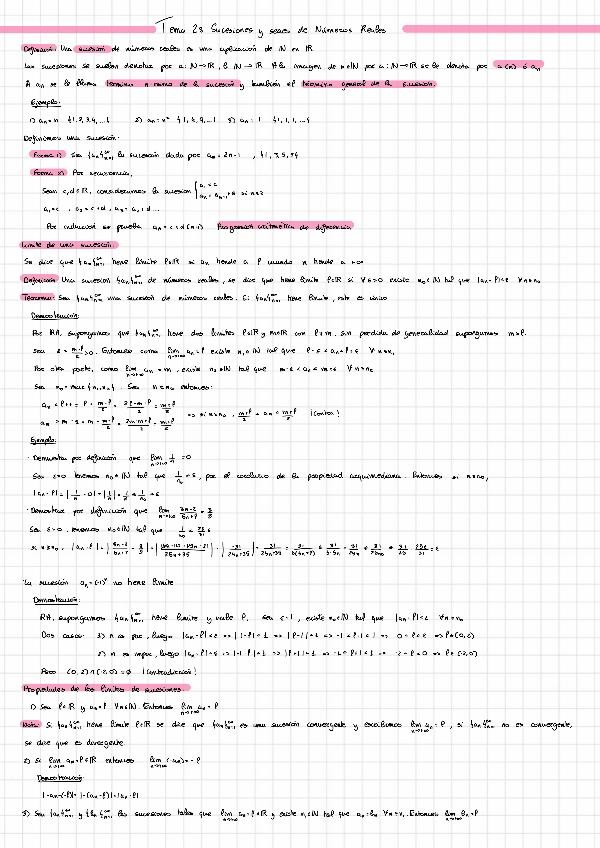 Tema 2: Sucesiones y series de Números Reales
Definición: Una sucesión de números reales es una aplicación de ℕ en ℝ
Las sucesiones se suelen denotar por a: ℕ→ℝ, b: ℕ→ℝ A la imagen de n∈ℕ por a: ℕ→ℝ se le denota por a(n) ó aₙ
A aₙ se le llama término n-ésimo de la sucesión y también el término general de la sucesión.
Ejemplo:
1) aₙ = n {1,2,3,4,...} 2) aₙ = n² {1,4,9,...} 3) aₙ = 1 {1,1,1,...}
Definimos una sucesión:
Forma 1) Sea {aₙ}ₙ₌₁^∞ la sucesión dada por aₙ = 2n-1, {1,3,5,7}
Forma 2) Por recurrencia,
Sean c,d∈ℝ, consideramos la sucesión { a₁ = c
aₙ = aₙ₋₁ + d si n≥2
a₁ = c, a₂ = c+d, a₃ = a₂+d...
Por inducción se prueba aₙ = c+d(n-1) Progresión aritmética de diferencia
Límite de una sucesión:
Se dice que {aₙ}ₙ₌₁^∞ tiene límite ℓ∈ℝ si aₙ tiende a ℓ cuando n tiende a +∞
Definición: Una sucesión {aₙ}ₙ₌₁^∞ de números reales, se dice que tiene límite ℓ∈ℝ si ∀ε>0 existe n₀∈ℕ tal que |aₙ-ℓ|<ε ∀n≥n₀
Teorema: Sea {aₙ}ₙ₌₁^∞ una sucesión de números reales. Si {aₙ}ₙ₌₁^∞ tiene límite, este es único
Demostración:
Por RA, supongamos que {aₙ}ₙ₌₁^∞ tiene dos límites ℓ∈ℝ y m∈ℝ con ℓ≠m, sin pérdida de generalidad supongamos m>ℓ.
Sea ε = (m-ℓ)/2 >0. Entonces como lim aₙ = ℓ existe n₁∈ℕ tal que ℓ-ε<aₙ<ℓ+ε ∀n≥n₁
Por otra parte, como lim aₙ = m, existe n₂∈ℕ tal que m-ε<aₙ<m+ε ∀n≥n₂
Sea n₀ = máx{n₁,n₂}. Sea n≥n₀ entonces:
aₙ < ℓ+ε = ℓ + (m-ℓ)/2 = (2ℓ+m-ℓ)/2 = (m+ℓ)/2
aₙ > m-ε = m - (m-ℓ)/2 = (2m-m+ℓ)/2 = (m+ℓ)/2 => si n≥n₀, (m+ℓ)/2 < aₙ < (m+ℓ)/2 ¡Contra!
Ejemplo:
· Demuestra por definición que lim 1/n = 0
Sea ε>0 tenemos n₀∈ℕ tal que 1/n₀ < ε, por el corolario de la propiedad arquimediana. Entonces si n≥n₀,
|aₙ-ℓ| = |1/n - 0| = |1/n| = 1/n ≤ 1/n₀ < ε
· Demostrar por definición que
Sea ε>0, tenemos n₀∈ℕ tal que
si n≥n₀, |aₙ-ℓ| =
· La sucesión aₙ = (-1)ⁿ no tiene límite
Demostración:
RA, supongamos {aₙ}ₙ₌₁^∞ tiene límite y vale ℓ, sea ε=1, existe n₀∈ℕ tal que |aₙ-ℓ|<ε ∀n≥n₀
Dos casos: 1) n es par, luego |aₙ-ℓ|<ε => |1-ℓ|<1 => |ℓ-1|<1 => -1<ℓ-1<1 => 0<ℓ<2 => ℓ∈(0,2)
2) n es impar, luego |aₙ-ℓ|<ε => |-1-ℓ|<1 => |ℓ+1|<1 => -1<ℓ+1<1 => -2<ℓ<0 => ℓ∈(-2,0)
Pero (0,2)∩(-2,0) = ∅ ¡Contradicción!
Propiedades de los límites de sucesiones:
1) Sea ℓ∈ℝ y aₙ = ℓ ∀n∈ℕ. Entonces lim aₙ = ℓ
Nota: Si {aₙ}ₙ₌₁^∞ tiene límite ℓ∈ℝ se dice que {aₙ}ₙ₌₁^∞ es una sucesión convergente y escribimos lim aₙ = ℓ, si {aₙ}ₙ₌₁^∞ no es convergente,
se dice que es divergente
2) Si lim aₙ = ℓ∈ℝ entonces lim (-aₙ) = -ℓ
Demostración:
|-aₙ-(-ℓ)| = |-(aₙ-ℓ)| = |aₙ-ℓ|
3) Sean {aₙ}ₙ₌₁^∞ y {bₙ}ₙ₌₁^∞ dos sucesiones tales que lim aₙ = ℓ∈ℝ y existe n₁∈ℕ tal que aₙ = bₙ ∀n≥n₁. Entonces lim bₙ = ℓ